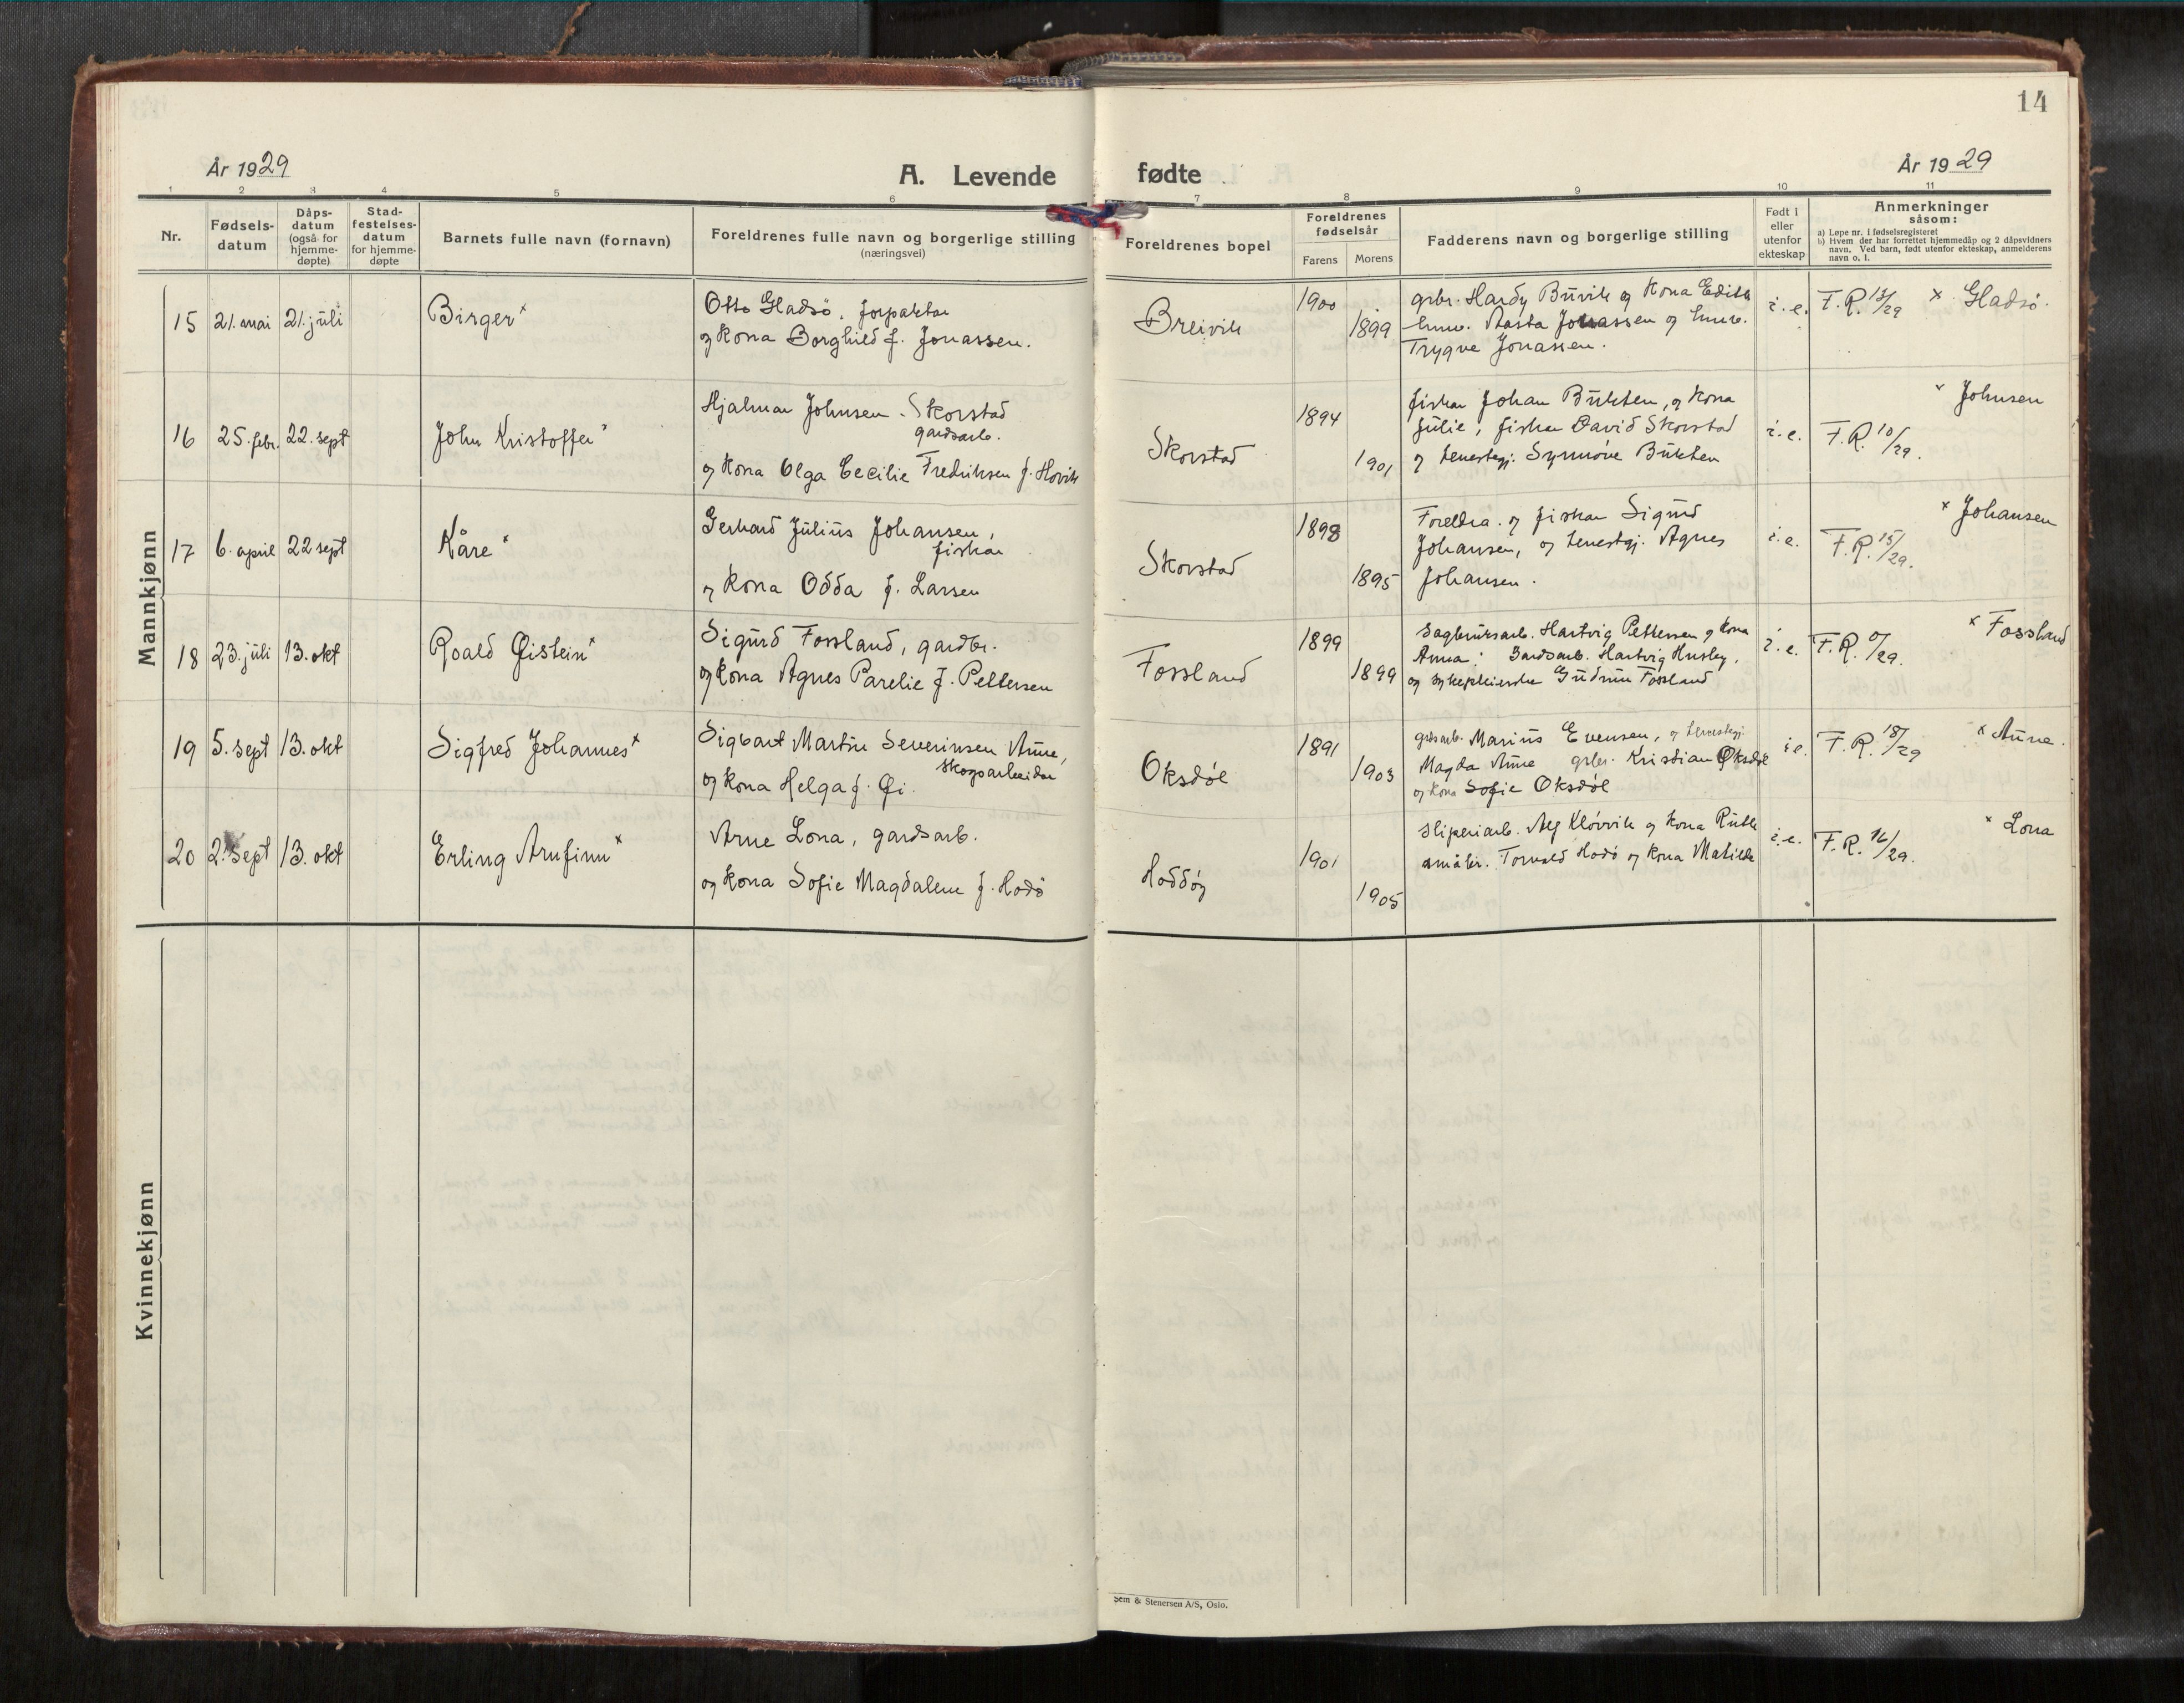 14
År 1929
A. Levende fødte
År 1929
1 2 3 4 5 6 7 8 9 10 11
Nr.
Fødsels-
datum
Dåps-
datum
(også for
hjemme-
døpte)
Stad-
festelses-
datum
for hjemme-
døpte
Barnets fulle navn (fornavn)
Foreldrenes fulle navn og borgerlige stilling
(næringsvei)
Foreldrenes bopel
Foreldrenes
fødselsår
Farens Morens
Fadderens navn og borgerlige stilling
Født i
eller
utenfor
ekteskap
Anmerkninger
såsom:
a) Løpe nr. i fødselsregisteret
b) Hvem der har forrettet hjemmedåp og 2 dåpsvidners
navn. Ved barn, født utenfor ekteskap, anmelderens
navn o. l.
Mannkjønn
15 21. mai 21. júli Birger x
Otto Gladsö, forpaktar
og kona Borghild f. Jonassen.
Breivik 1900 1899
grbr. Hardy Búvik og kona Edith
Aasta Jonassen og
Trygve Jonassen.
i. e. F. R. 12/29 x Gladsö.
16 25. febr. 22. sept John Kristoffer x
Hjalmar Johnsen Skorstad
gardsarb.
og kona Olga Cecilie Fredriksen f. Hovik
Skorstad 1894 1901
fiskar Johan Búkten, og kona
Júlie, fiskar David Skorstad
og tenestegj. Synnöve Búkten
i. e. F. R. 10/29. x Johnsen
17 6. april 22 sept Kåre x
Gerhard Júliús Johansen,
fiskar
og kona Odda f. Larsen
Skorstad 1898 1895
Foreldra og fiskar Sigúrd
Johansen, og tenestgj. Agnes
Johansen.
i. e. F. R. 15/29. x Johansen
18 23. júli 13. okt Roald Øistein x
Sigúrd Fossland, gardbr.
og kona Agnes Parelie f. Pettersen
Fossland 1899 1899
Sagbrúksarb. Hartvig Pettersen og kona
Anna. Gardsarb. Hartvig Husby,
og sykepleierske Gúdrún Fossland
i. e. F. R. /29. x Fossland
19 5. sept 13. okt Sigfred Johannes x
Sigbart Martin Severinsen Aúne,
skogsarbeidar
og kona Helga f. Øi.
Oksdøl 1891 1903
grdsarb. Mariús Evensen, og tenestgj.
Magda Aúne grbr. Kristian Oksdøl
og kona Sofie Oksdøl
i e. F. R. 18/29 x Aúne.
20 2. sept 13. okt Erling Arnfinn x
Arne Lona, gardsarb.
og kona Sofie Magdalene f. Hodö
Hoddöy 1901 1905
Sliperiarb. Alf Klövvik og kona Rúth
småbr. Torvald Hodö og kona Matilde
i. e. F. R. 16/29. x Lona
Kvinnekjønn
Sem & Stenersen A/S, Oslo.